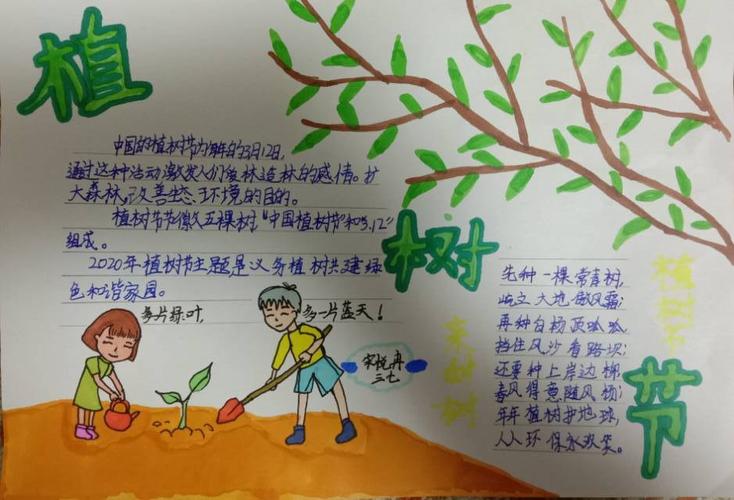 植
树
节
中国的植树节为每年的3月12日,
通过这种活动激发人们爱林造林的感情。扩
大森林,改善生态环境的目的。
植树节节徽以五棵树,“中国植树节”和“3.12”
组成。
2020年植树节主题是义务植树共建绿
色和谐家园。
多片绿叶,
多一片蓝天!
宋悦冉
三七
先种一棵常青树,
屹立大地傲风霜;
再种白杨顶呱呱,
挡住风沙看路坝;
还要种上岸边柳
春风得意随风扬;
年年植树护地球,
人人环保永欢笑。
植树节
来种树